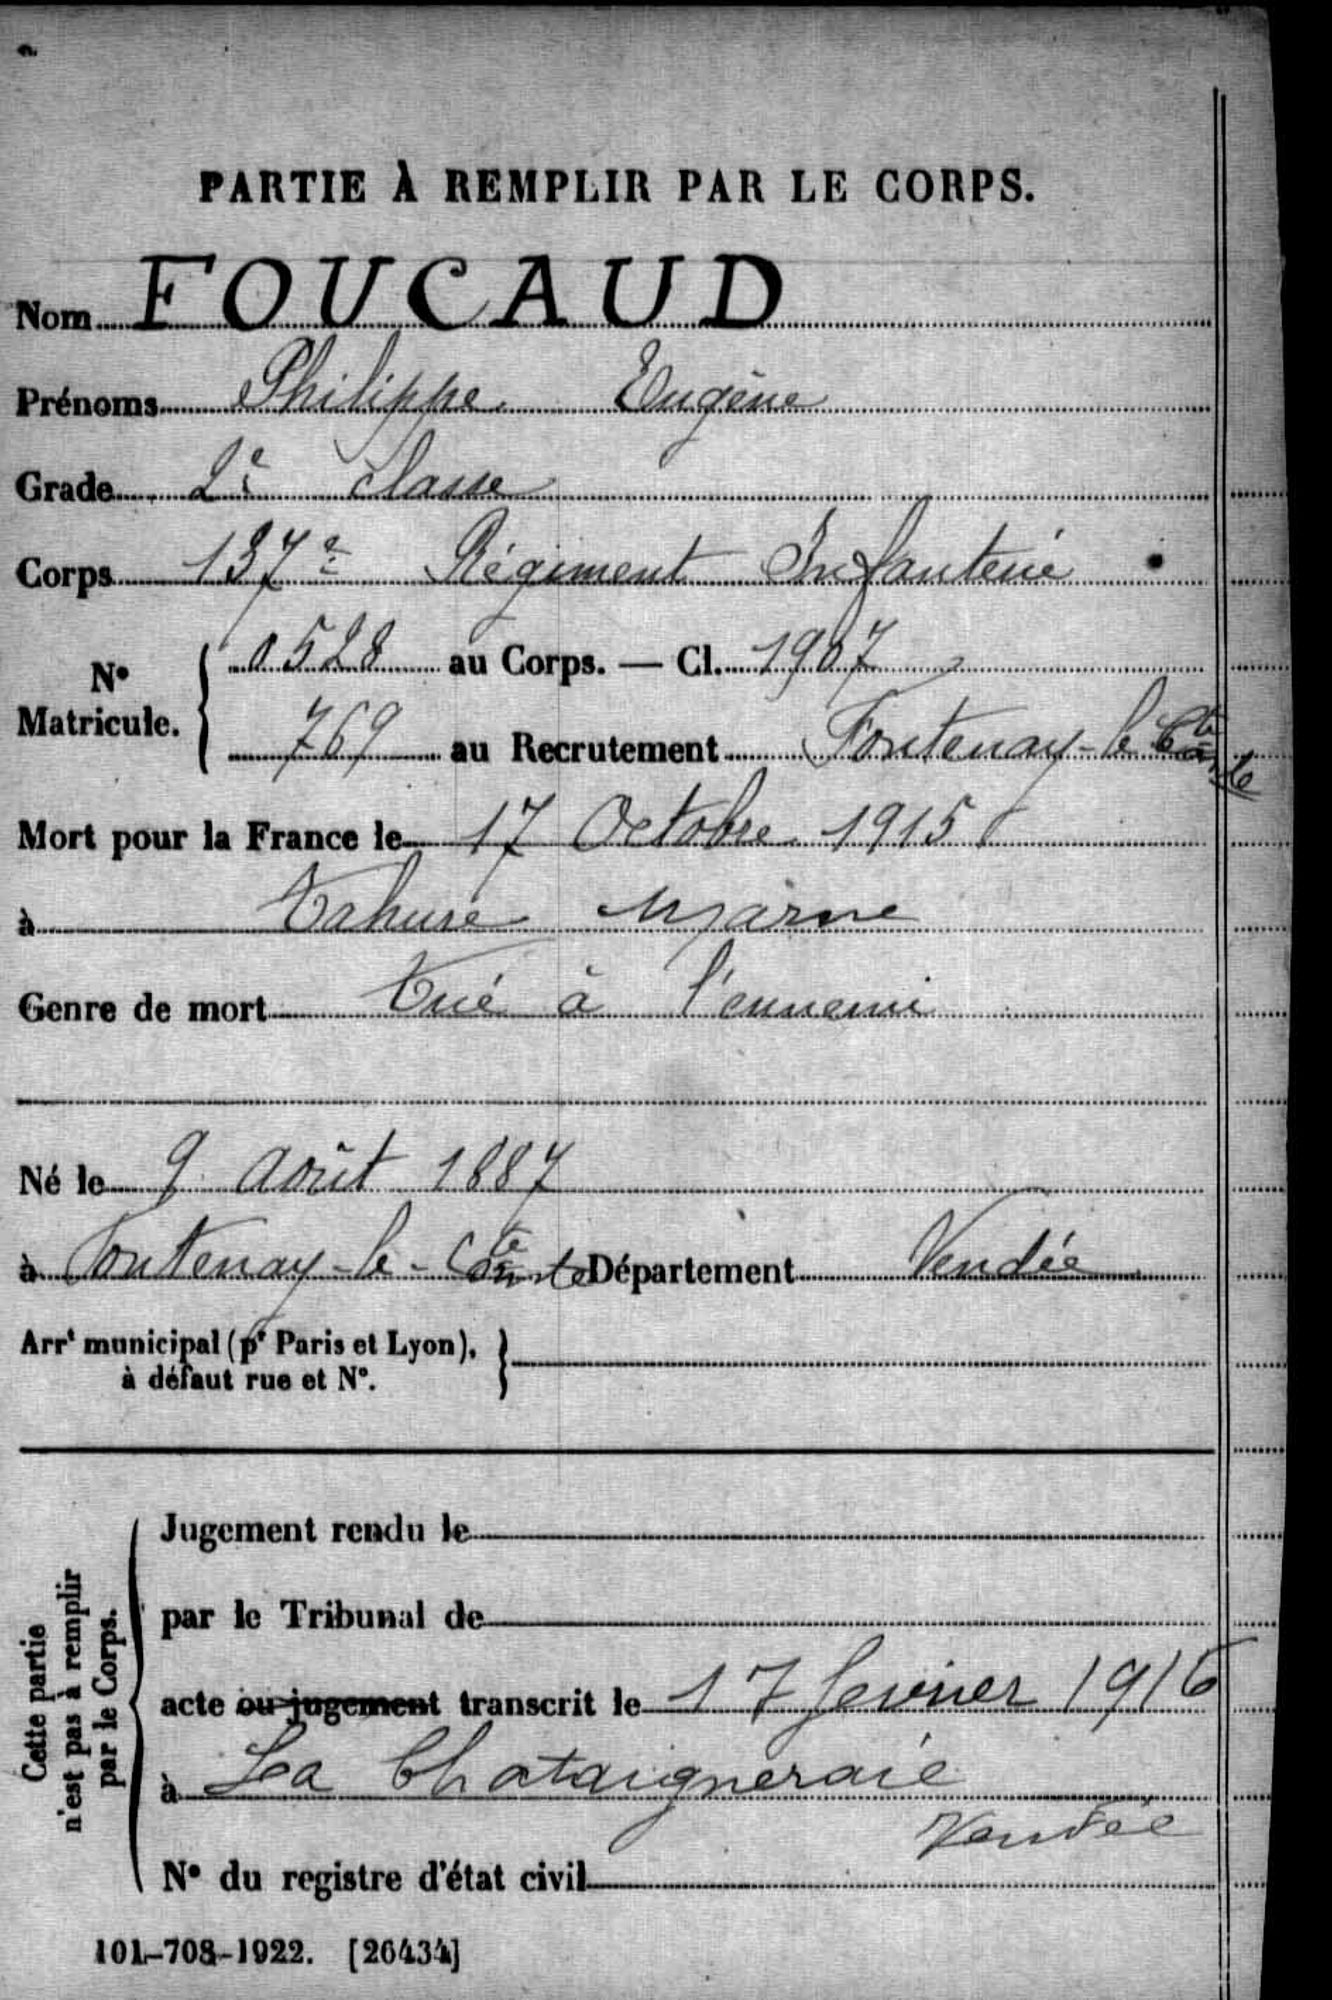 PARTIE À REMPLIR PAR LE CORPS.
Nom FOUCAUD
Prénoms Philippe Eugène
Grade 2e classe
Corps 137e Régiment Infanterie
No Matricule. 0528 au Corps. — Cl. 1907
769 au Recrutement Fontenay-le Cte Comte
Mort pour la France le 17 Octobre 1915
à Tahure Marne
Genre de mort Tué à l'ennemi
Né le 9 Août 1887
à Fontenay-le-Comte Département Vendée
Arrt municipal (pr Paris et Lyon),
à défaut rue et No.
Cette partie
n'est pas à remplir
par le Corps.
Jugement rendu le
par le Tribunal de
acte ou jugement transcrit le 17 fevrier 1916
à La Chataigneraie
Vendée
No du registre d'état civil
101-708-1922. [26434]